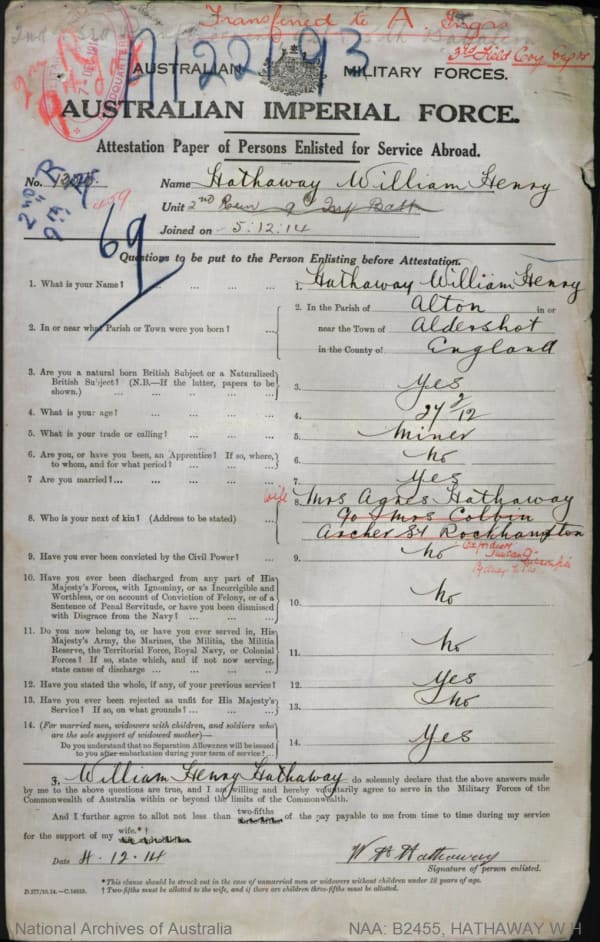 Transferred to A. Engrs
3rd Field Coy
AUSTRALIAN MILITARY FORCES.
AUSTRALIAN IMPERIAL FORCE.
Attestation Paper of Persons Enlisted for Service Abroad.
No. Name Hathaway William Henry
Unit 2nd
Joined on 5.12.14
69
Questions to be put to the Person Enlisting before Attestation.
1. What is your Name? ... ... ... ... 1. Hathaway William Henry
2. In or near what Parish or Town were you born? ... 2. In the Parish of Alton in or
near the Town of Aldershot
in the County of England
3. Are you a natural born British Subject or a Naturalized
British Subject? (N.B.—If the latter, papers to be
shown.) ... ... ... ... 3. Yes
4. What is your age? ... ... ... ... 4. 27 2/12
5. What is your trade or calling? ... ... ... 5. Miner
6. Are you, or have you been, an Apprentice? If so, where,
to whom, and for what period? ... ... ... 6. No
7 Are you married?... ... ... ... ... 7. Yes
8. Who is your next of kin? (Address to be stated) ... 8. wife Mrs Agnes Hathaway
c/o Mrs Colbin
Archer St Rockhampton
9. Have you ever been convicted by the Civil Power? ... 9. No
10. Have you ever been discharged from any part of His
Majesty's Forces, with Ignominy, or as Incorrigible and
Worthless, or on account of Conviction of Felony, or of a
Sentence of Penal Servitude, or have you been dismissed
with Disgrace from the Navy? ... ... ... 10. No
11. Do you now belong to, or have you ever served in, His
Majesty's Army, the Marines, the Militia, the Militia
Reserve, the Territorial Force, Royal Navy, or Colonial
Forces? If so, state which, and if not now serving,
state cause of discharge ... ... ... 11. No
12. Have you stated the whole, if any, of your previous service? 12. Yes
13. Have you ever been rejected as unfit for His Majesty's
Service? If so, on what grounds? ... ... ... 13. No
14. (For married men, widowers with children, and soldiers who
are the sole support of widowed mother)—
Do you understand that no Separation Allowance will be issued
to you after embarkation during your term of service? ... 14. Yes
I, William Henry Hathaway do solemnly declare that the above answers made
by me to the above questions are true, and I am willing and hereby voluntarily agree to serve in the Military Forces of the
Commonwealth of Australia within or beyond the limits of the Commonwealth.
And I further agree to allot not less than two-fifths of the pay payable to me from time to time during my service
for the support of my wife.*†
Date 4.12.14 W H Hathaway
Signature of person enlisted.
*This clause should be struck out in the case of unmarried men or widowers without children under 18 years of age.
† Two-fifths must be allotted to the wife, and if there are children three-fifths must be allotted.
D.277/10.14.—C.14615.
National Archives of Australia NAA: B2455, HATHAWAY W H